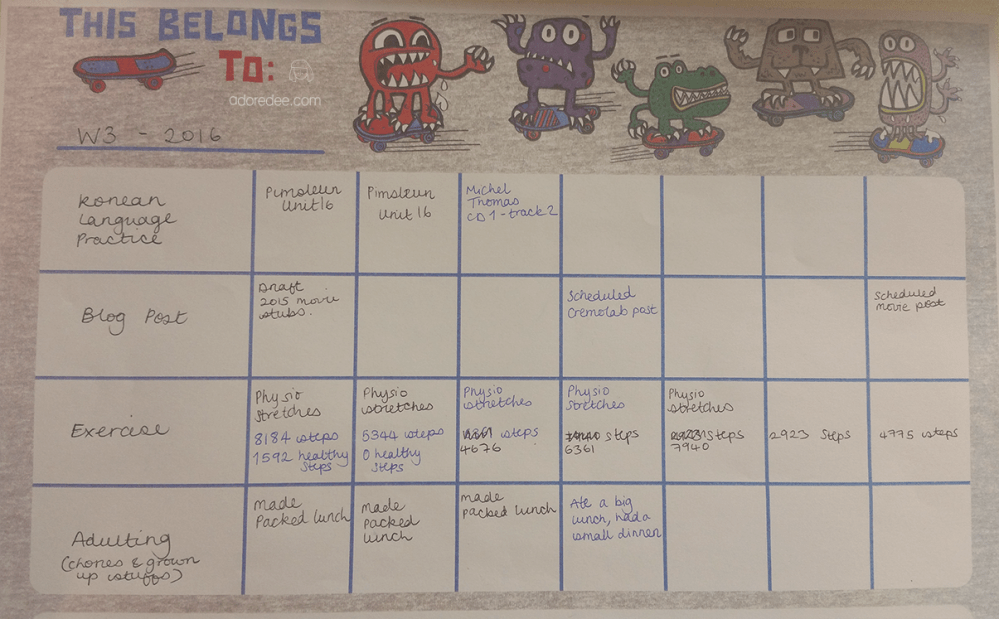 THIS BELONGS
TO:
adoredee.com
W3 - 2016
Korean
Language
Practice
Pimsleur
Unit 16
Pimsleur
Unit 16
Michel
Thomas
CD 1 - track 2
Blog Post
Draft
2015 movie
stubs.
Scheduled
Cremolab post
Scheduled
movie post
Exercise
Physio
stretches
8184 steps
1592 healthy
steps
Physio
stretches
5344 steps
0 healthy
steps
Physio
stretches
steps
4676
Physio
stretches
steps
6361
Physio
stretches
steps
7940
2923 steps
4775 steps
Adulting
(chores & grown
up stuffs)
made
packed lunch
made
packed
lunch
made
packed lunch
Ate a big
lunch, had a
small dinner